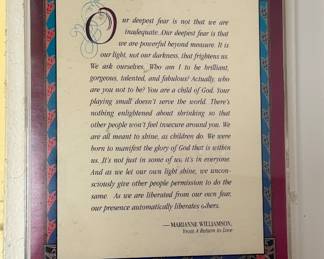 Our deepest fear is not that we are
inadequate. Our deepest fear is that
we are powerful beyond measure. It is
our light, not our darkness, that frightens us.
We ask ourselves, Who am I to be brilliant,
gorgeous, talented, and fabulous? Actually, who
are you not to be? You are a child of God. Your
playing small doesn't serve the world. There's
nothing enlightened about shrinking so that
other people won't feel insecure around you. We
are all meant to shine, as children do. We were
born to manifest the glory of God that is within
us. It's not just in some of us; it's in everyone.
And as we let our own light shine, we uncon-
sciously give other people permission to do the
same. As we are liberated from our own fear,
our presence automatically liberates others.
— MARIANNE WILLIAMSON,
from A Return to Love